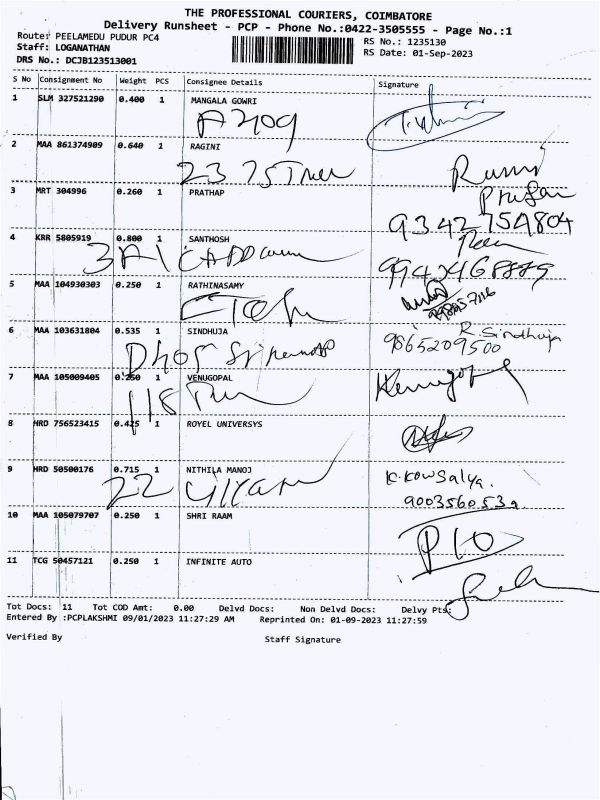 THE PROFESSIONAL COURIERS, COIMBATORE
Delivery Runsheet - PCP - Phone No.:0422-3505555 - Page No.:1
Route: PEELAMEDU PUDUR PC4
RS No.: 1235130
Staff: LOGANATHAN
RS Date: 01-Sep-2023
DRS No.: DCJB123513001
S No Consignment No Weight PCS Consignee Details Signature
1 SLM 327521290 0.400 1 MANGALA GOWRI
A 409
2 MAA 861374909 0.640 1 RAGINI
23 75
3 MRT 304996 0.260 1 PRATHAP
934275A804
4 KRR 5805919 0.800 1 SANTHOSH
3A1
5 MAA 104930303 0.250 1 RATHINASAMY
6 MAA 103631804 0.535 1 SINDHUJA
R. Sindhuja
9865209500
7 MAA 105009405 0.250 1 VENUGOPAL
118
8 HRD 756523415 0.425 1 ROYEL UNIVERSYS
9 HRD 50500176 0.715 1 NITHILA MANOJ
K. Kowsalya.
22
9003560539
10 MAA 105079707 0.250 1 SHRI RAAM
P10
11 TCG 50457121 0.250 1 INFINITE AUTO
Tot Docs: 11 Tot COD Amt: 0.00 Delvd Docs: Non Delvd Docs: Delvy Pts:
Entered By :PCPLAKSHMI 09/01/2023 11:27:29 AM Reprinted On: 01-09-2023 11:27:59
Verified By Staff Signature